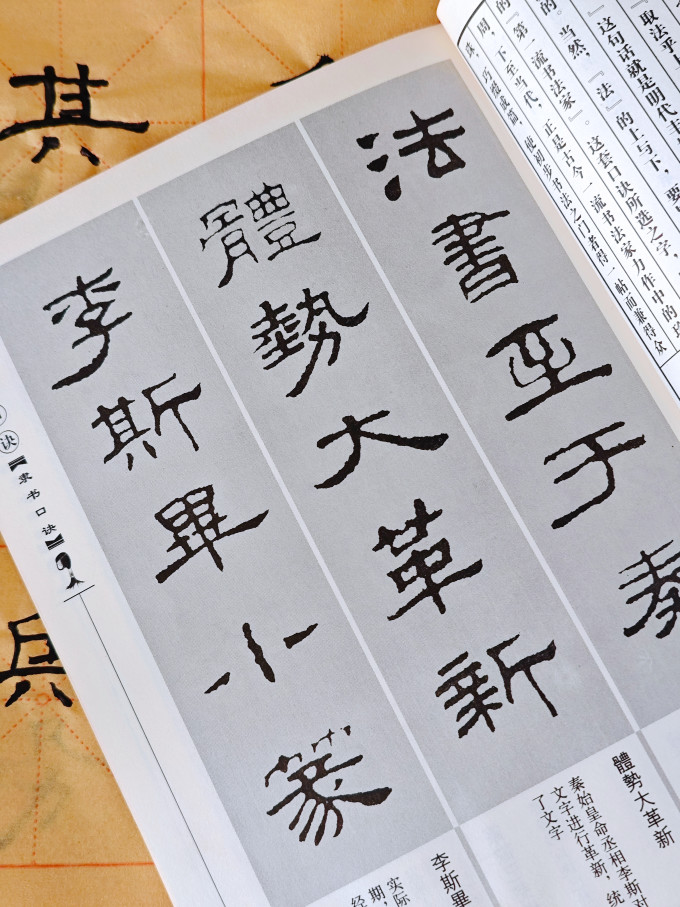 取法乎上
这句话就是明代王
的。当然，『法』的上与下，要
的『第一流书法家』。这套口诀所选之字，
周，下至当代，正是古今一流书法家力作中的
巧缀成篇，使初步书法之门者得一帖而兼得众
法書至于秦
體勢大革新
李斯畢小篆
體勢大革新
秦始皇命丞相李斯对
文字进行革新，统
了文字
李斯畢
实际
期，
经
诀
【隶书口诀】
其